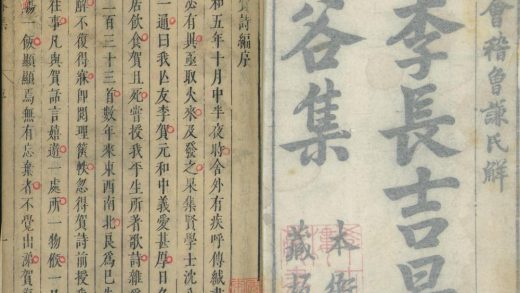 會稽魯謙氏解
李長吉昌
谷集
本衙
藏
賀詩編序
和五年十月中半夜時舍外有疾呼傳緘書
必有異亟取火來及發之果集賢學士沈
一通曰我亡友李賀元和中義愛甚厚日
居飲食賀且死嘗授我平生所著歌詩離
一百三十三首數年來東西南北良爲已
解不復得寐卽閱理篋帙忽得賀詩前授
往事凡與賀話言嬉遊一處所一物候一
觴一飯顯顯焉無有忘棄者不覺出涕賀